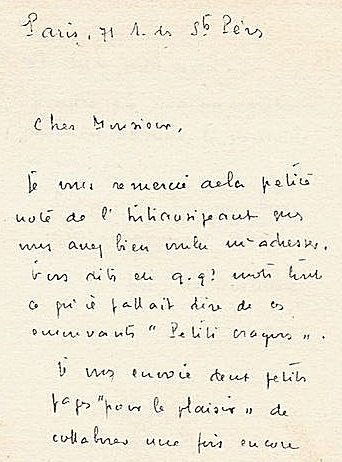 Paris, 71 r. des Sts Pères
Cher Monsieur,
Je vous remercie de la petite
note de l'Intransigeant que
vous avez bien voulu m'adresser.
Vous dites en q.q. mots tout
ce qu'il fallait dire de ces
émouvants "Petits crayons".
Je vous envoie deux petites
pages "pour le plaisir" de
collaborer une fois encore